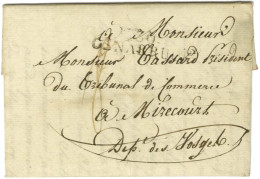 à Monsieur
Monsieur Tassard Président
du Tribunal de Commerce
à Mirecourt
Dépt. des Vosges